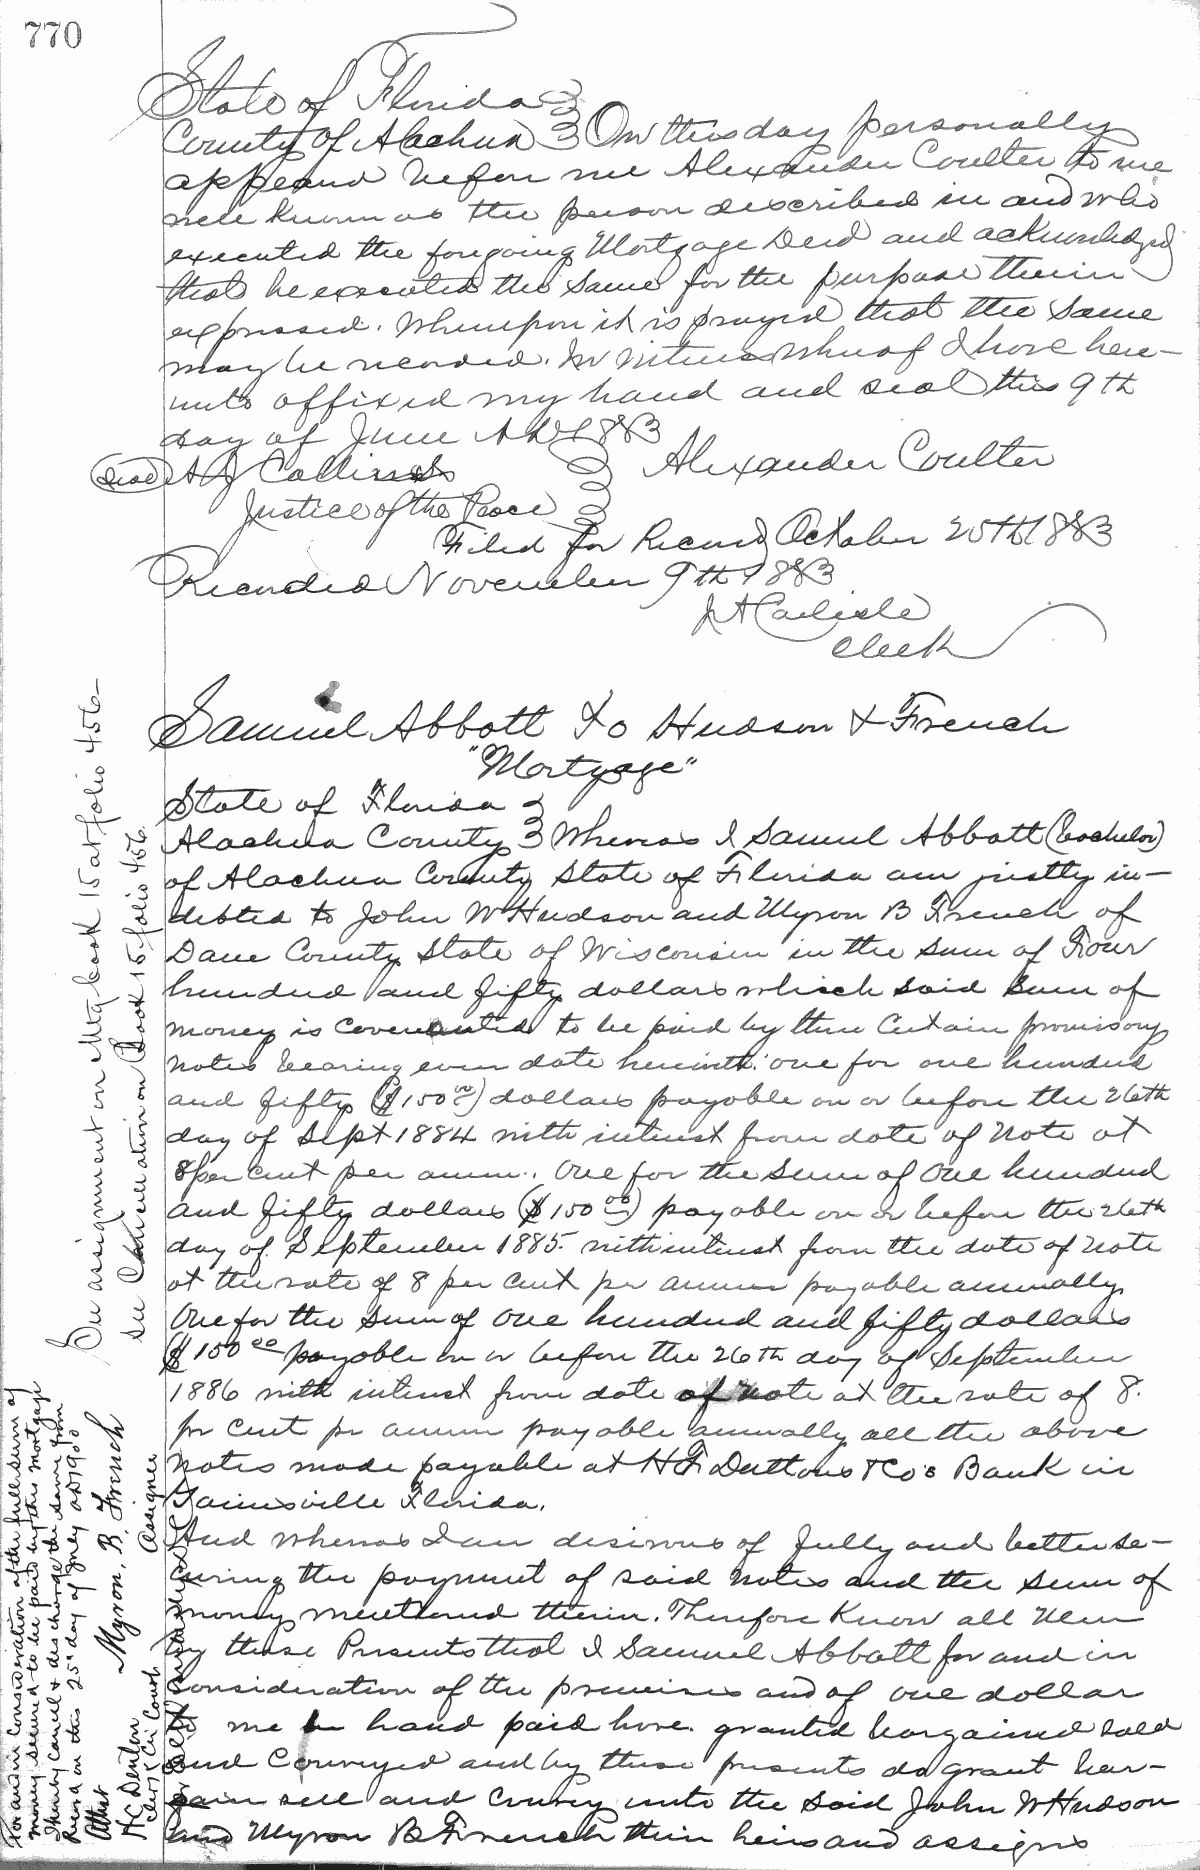 770
State of Florida
County of Alachua On this day personally
appeard before me Alexander Coulter to me
well known as the person described in and who
executed the foregoing Mortgage Deed and acknowledged
that he executed the same for the purpose therein
expressed. Whereupon it is prayed that the same
may be recorded. In witness whereof I have here-
unto affixed my hand and seal this 9th
day of June AD 1883
(Seal) A J Collins Alexander Coulter
Justice of the Peace
Filed for Record October 25th 1883
Recorded November 9th 1883
J A Carlisle
Clerk
Samuel Abbott To Hudson & French
"Mortgage"
State of Florida
Alachua County Whereas I Samuel Abbott (bachelor)
of Alachua County State of Florida am justly in-
debted to John W Hudson and Myron B French of
Dane County State of Wisconsin in the sum of Four
hundred and fifty dollars which said sum of
money is covenanted to be paid by three certain promissory
notes bearing even date herewith. one for one hundred
and fifty ($150 00) dollars payable on or before the 26th
day of Sept 1884 with interest from date of note at
8 per cent per annum. One for the sum of One hundred
and fifty dollars ($150 00) payable on or before the 26th
day of September 1885. with interest from the date of note
at the rate of 8 per cent per annum payable annually
One for the sum of one hundred and fifty dollars
$150 00 payable on or before the 26th day of September
1886 with interest from date of note at the rate of 8.
pr cent pr annum payable annually all the above
notes made payable at H F Duttons & Co's Bank in
Gainesville Florida.
And whereas I am desirous of fully and better se-
curing the payment of said notes and the sum of
money mentioned therein. Therefore Know all Men
by these Presents that I Samuel Abbott for and in
consideration of the premises and of one dollar
to me in hand paid have granted bargained sold
and conveyed and by these presents do grant bar-
gain sell and convey unto the said John W Hudson
and Myron B French their heirs and assigns
See assignment on Mtg book 15 at folio 456-
see Cancellation on Book 15 folio 456.
For and in consideration of the full sum of
money secured to be paid by this mortgage
I hereby cancel & discharge the same from
Record on this 25" day of Jney AD 1900
Myron. B. French
Assignee
Attest
H C Denton
Clerk Cir Court